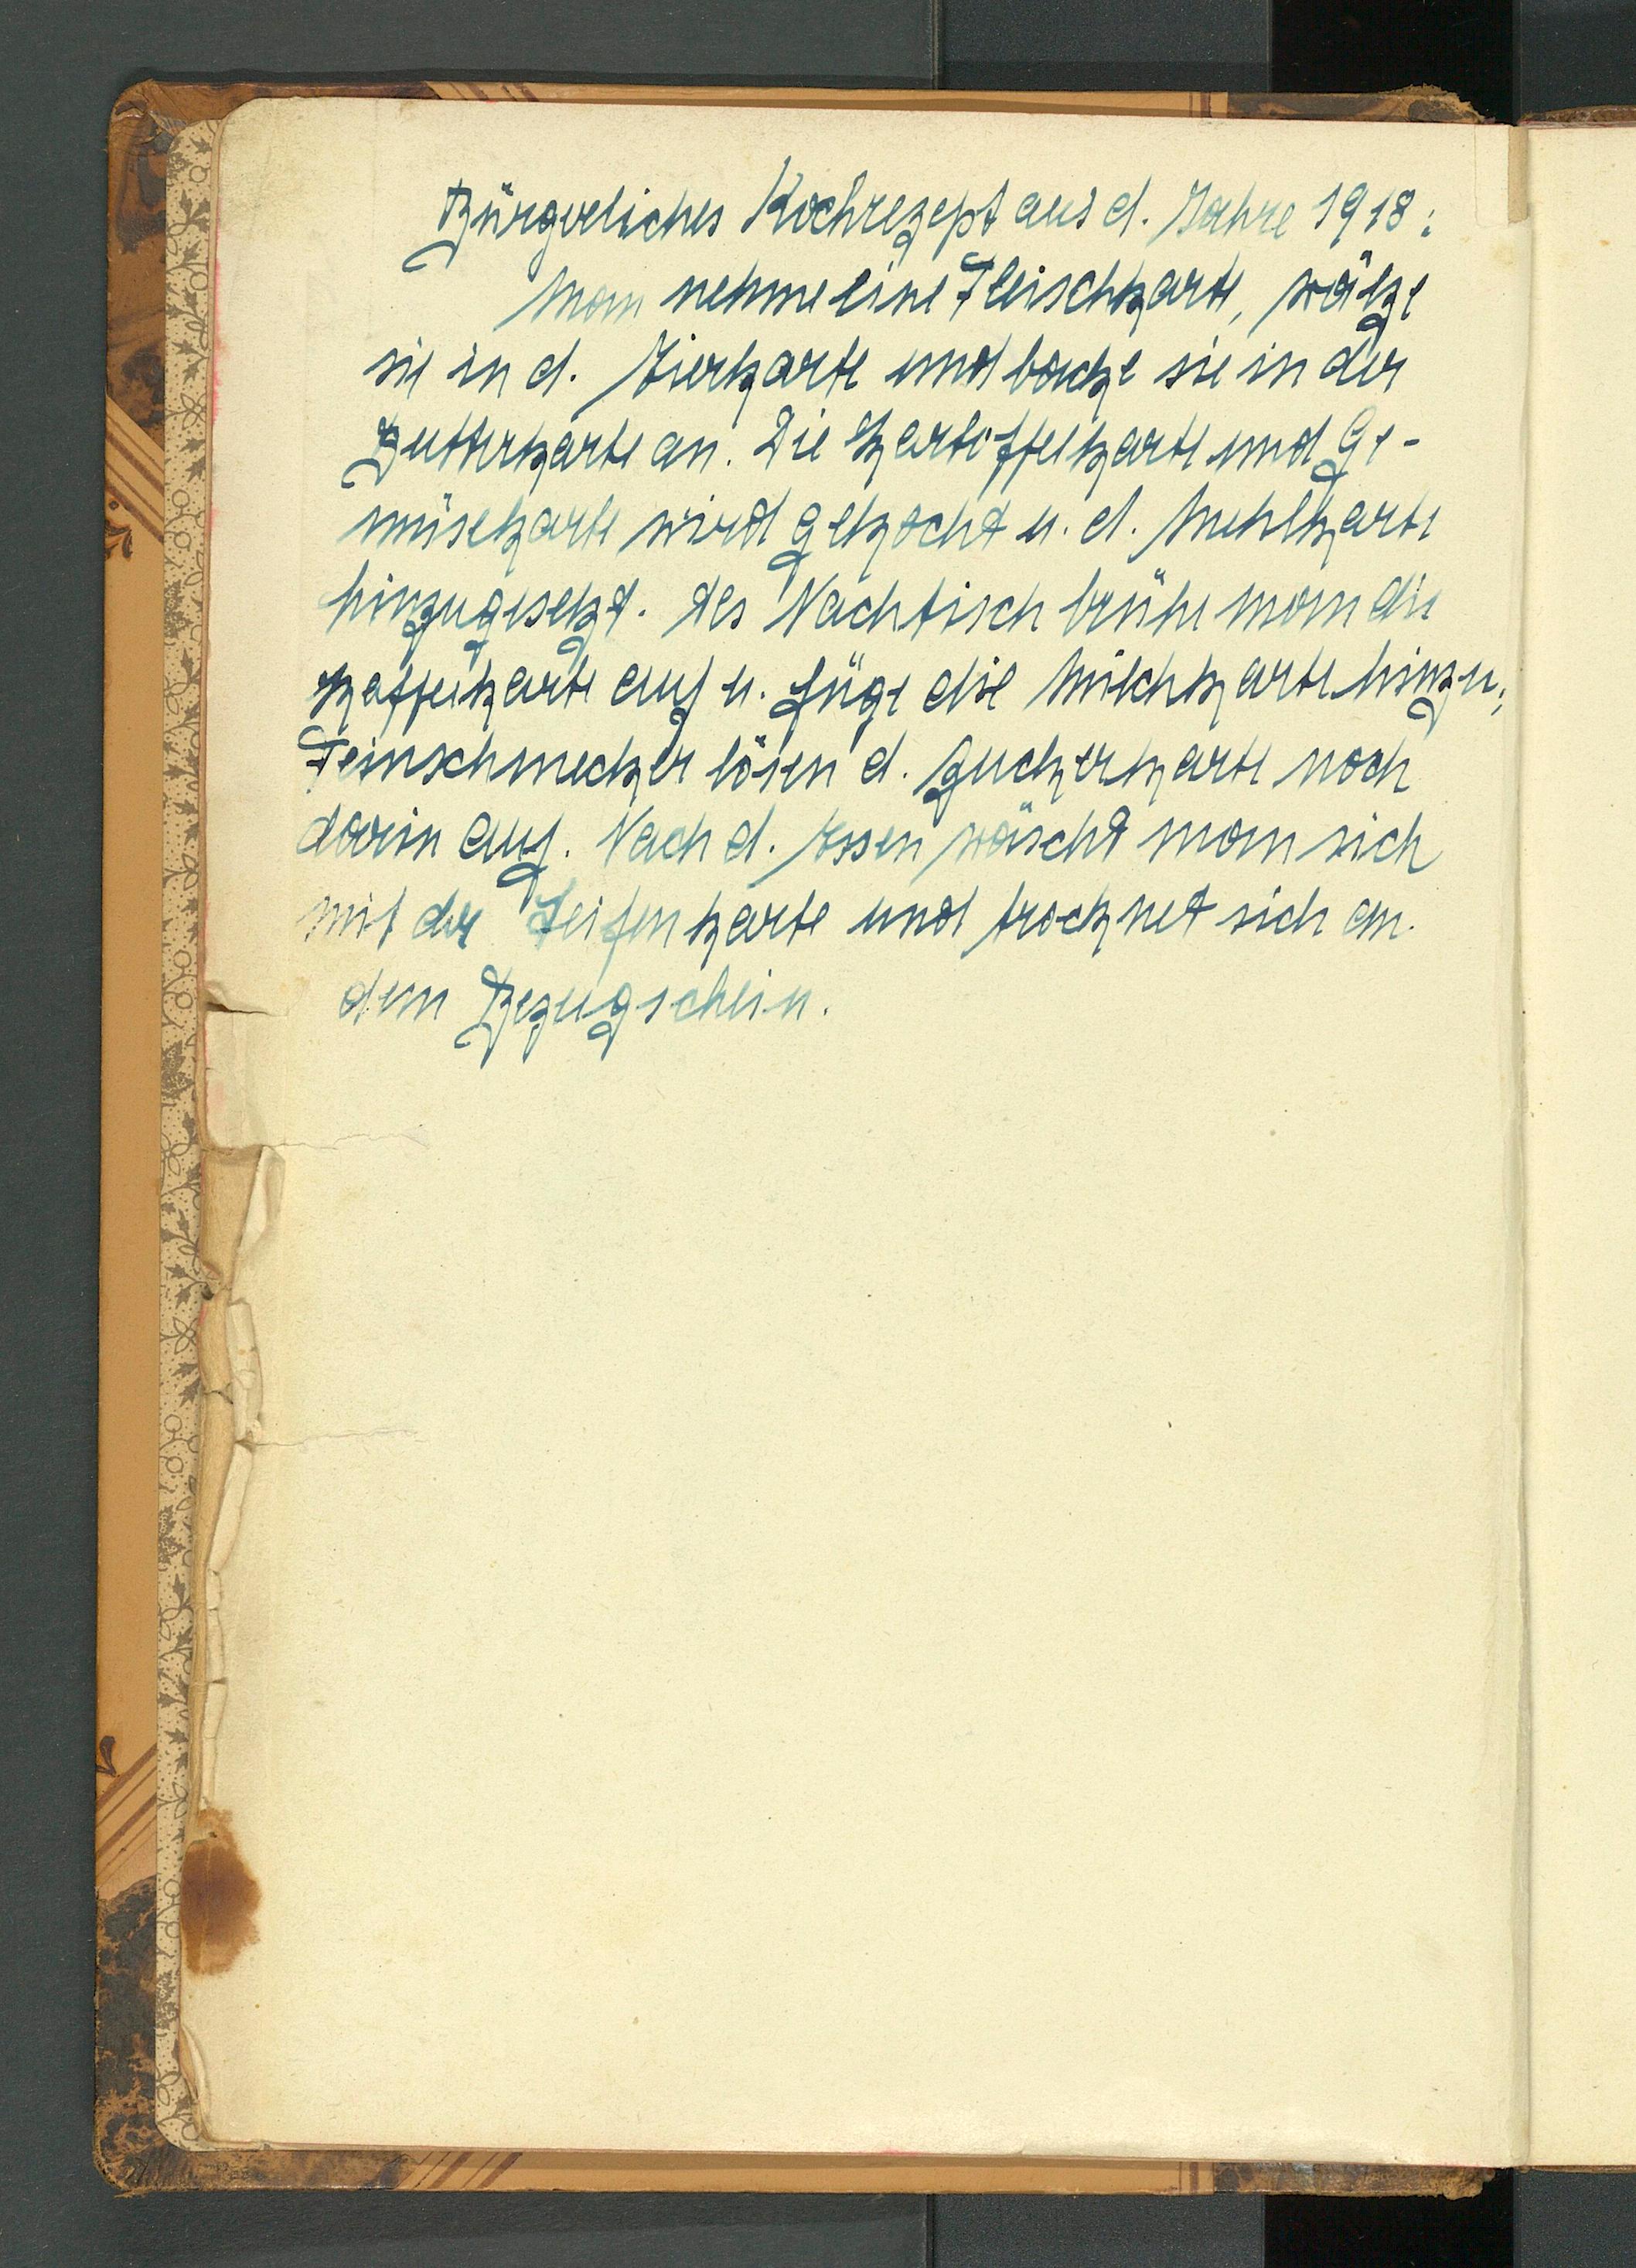 Bürgerliches Kochrezept aus d. Jahre 1918:
Man nehme eine Fleischkarte, wälze
sie in d. Eierkarte und backe sie in der
Butterkarte an. Die Kartoffelkarte und Ge-
müsekarte wird gekocht u. d. Mehlkarte
hinzugesetzt. Als Nachtisch brühe man die
Kaffeekarte auf u. füge die Milchkarte hinzu;
Feinschmecker lösen d. Zuckerkarte noch
darin auf. Nach d. Essen wäscht man sich
mit der Seifenkarte und trocknet sich an
dem Bezugschein.